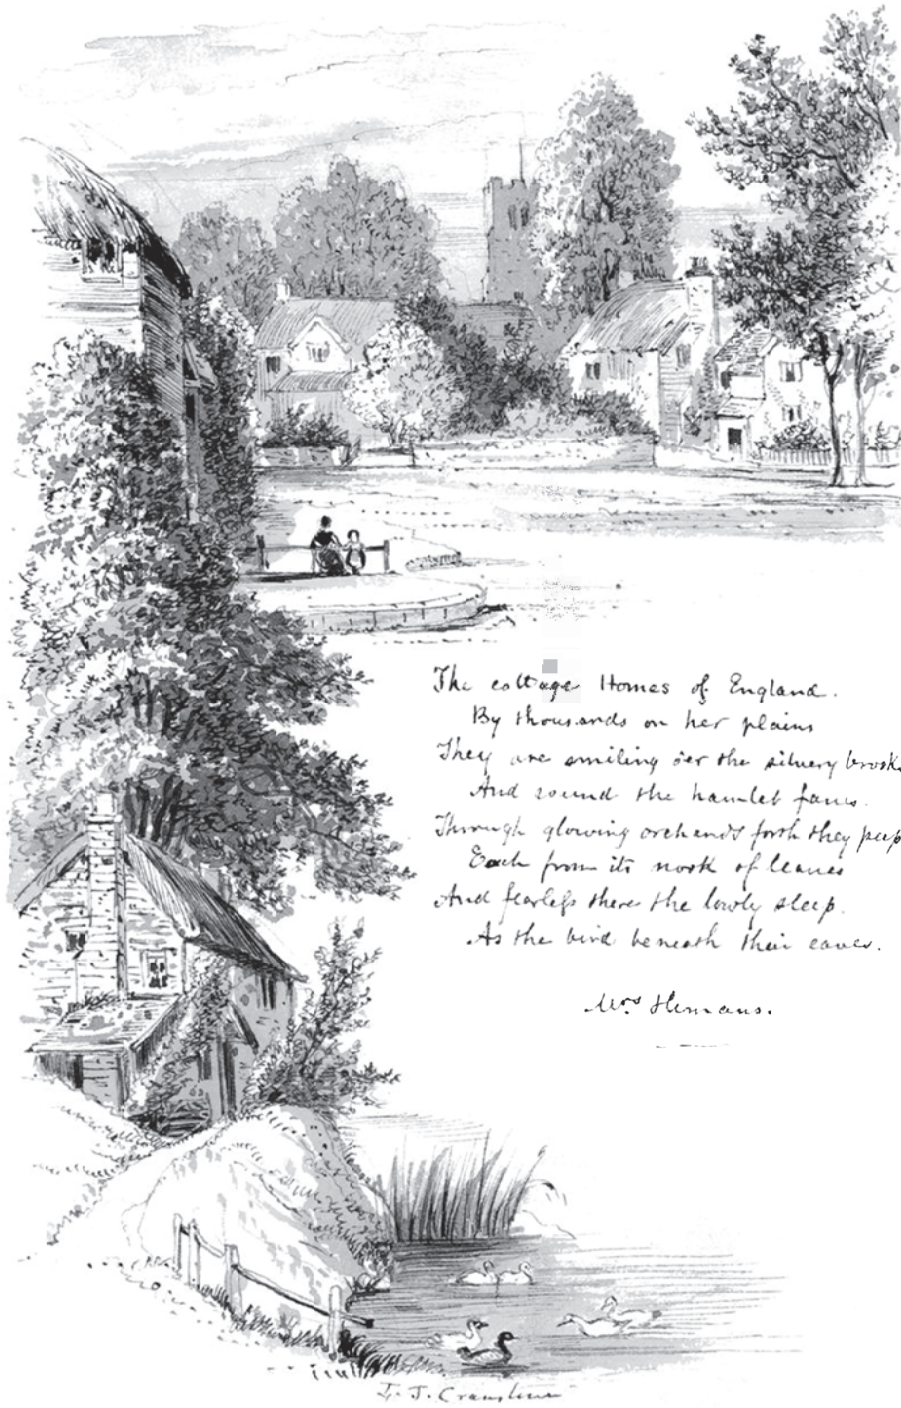 The cottage Homes of England.
By thousands on her plains
They are smiling o'er the silvery brooks
And round the hamlet fanes.
Through glowing orchards forth they peep
Each from its nook of leaves
And fearless there the lowly sleep.
As the bird beneath their eaves.
Mrs Hemans.